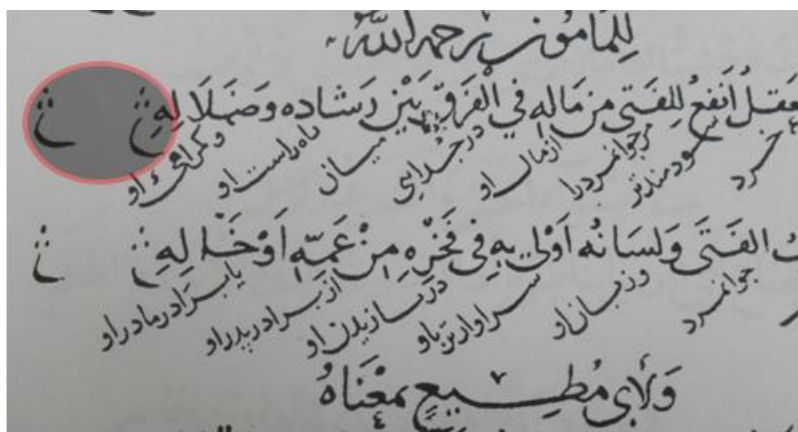 لِلْمَأمُونِ رَحِمَهُ اللَّهُ
لعَقلُ اَنفَعُ لِلفَتٰى مِن مَالِهٖ فِي الْفَرْقِ بَيْنَ رَشَادِه وَضَلَالِهِ
خرد سودمندتر مرجوانمرد را از مال او در جدایی میان راه راست او و گمراهی او
الفَتَى وَلِسَانُه اَوْلٰى بِهٖ فِي فَخْرِهِ مِنْ عَمِّهٖ اَوْ خَالِهِ
جوانمرد و زبان او سزاوارتر باو در نازیدن او از برادر پدر او یا برادر مادر او
وَلِاَبِي مُطِيعٍ بِمَعْنَاهُ